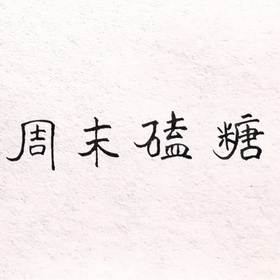 周末磕糖